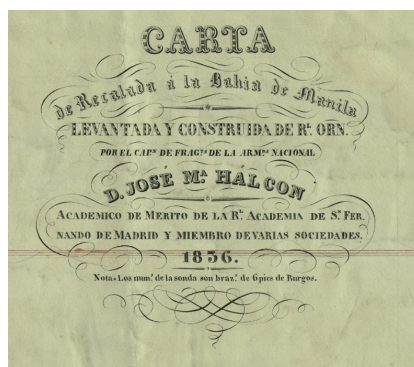 CARTA
de Recalada á la Bahia de Manila
LEVANTADA Y CONSTRUIDA DE Rl. ORN.
POR EL CAPn. DE FRAGta. DE LA ARMda. NACIONAL
D. JOSÉ Ma. HÁLCON
ACADEMICO DE MERITO DE LA Rl. ACADEMIA DE Sn. FER.
NANDO DE MADRID Y MIEMBRO DE VARIAS SOCIEDADES.
1836.
Nota = Los nums. de la sonda son brazs. de 6 pies de Burgos.